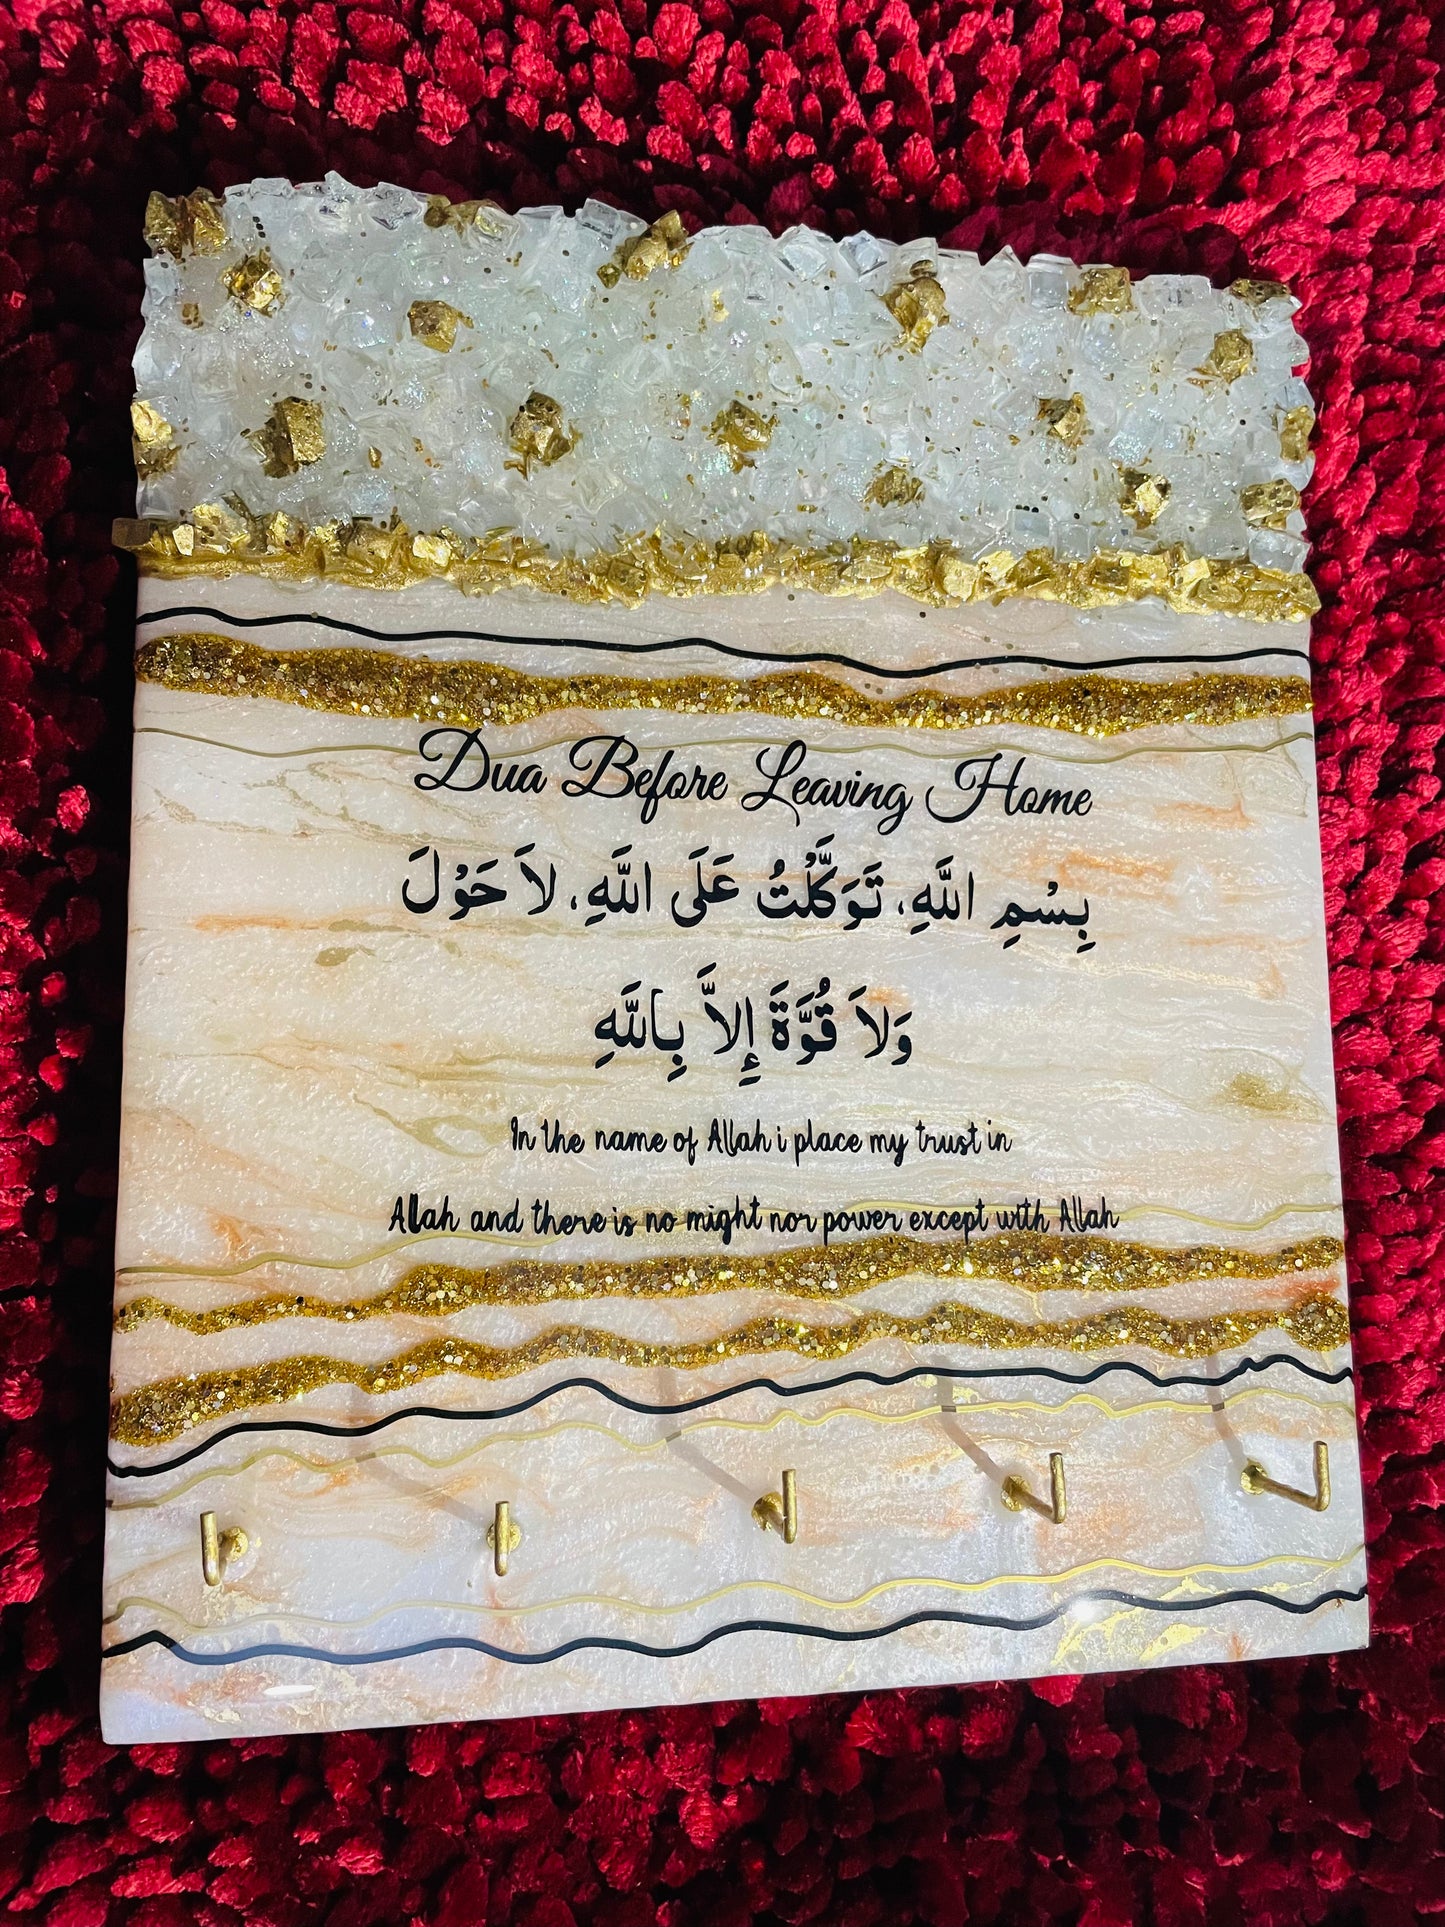 Dua Before Leaving Home
بِسْمِ اللَّهِ، تَوَكَّلْتُ عَلَى اللَّهِ، لاَ حَوْلَ
وَلاَ قُوَّةَ إِلاَّ بِاللَّهِ
In the name of Allah i place my trust in
Allah and there is no might nor power except with Allah